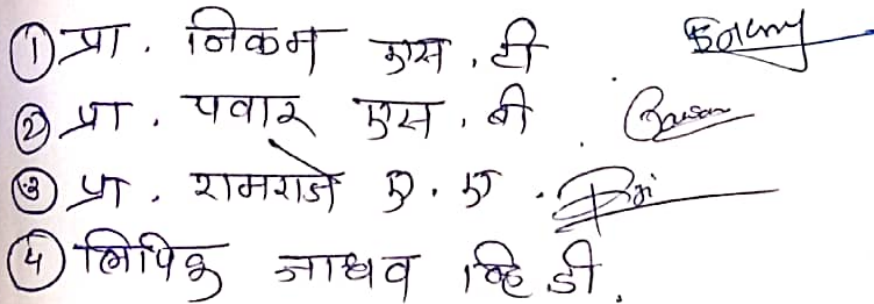 ① प्रा. निकम एस. टी
② प्रा. पवार एस. बी
③ प्रा. रामराजे ए. ए.
④ लिपिक जाधव व्हि डी.